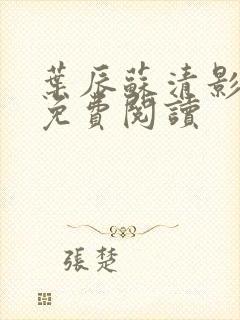 葉辰蘇清影
免費閱讀
張楚